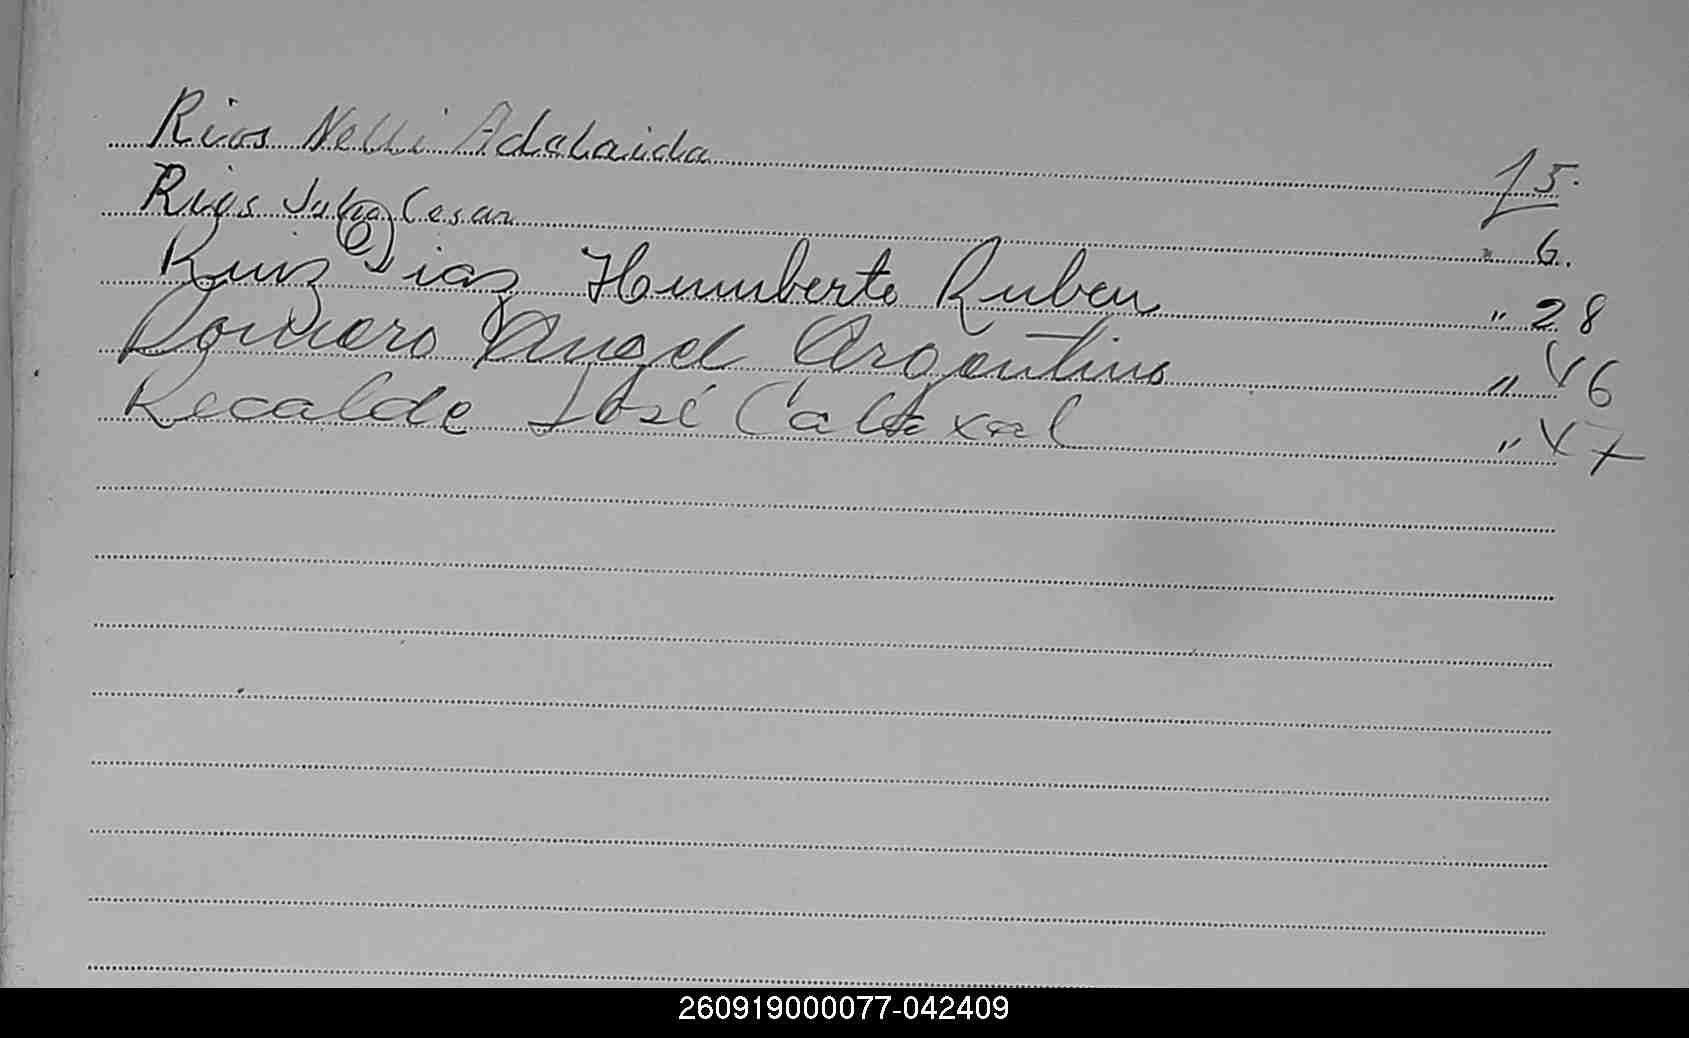 Rios Nelli Adalaida f 5.
Rios Julio Cesar " 6.
Ruiz Dias Humberto Ruben " 28
Romero Angel Argentino " 46
Recalde José " 47
260919000077-042409